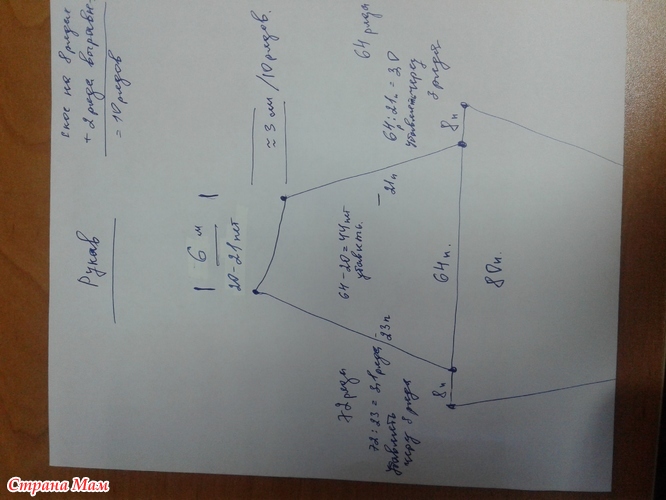 Рукав
скос на 8 рядах
+ 2 ряда выравн.
= 10 рядов
6 см
20-21 пет
≈ 3 см / 10 рядов.
64-20=44 пет
убавить.
72 ряда
72:23=3,1 ряда
убавлять
через 3 ряда
-23п
-21п
64 ряда
64:21п=3,0
убавлять через
3 ряда
8п
64п.
8п
80п.
Страна Мам